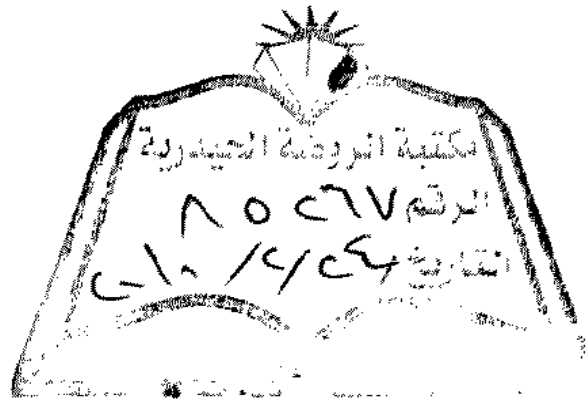 مكتبة الروضة الحيدرية
الرقم ٨٥٢٦٧
التاريخ ٢٤/٢/٢٠١٠